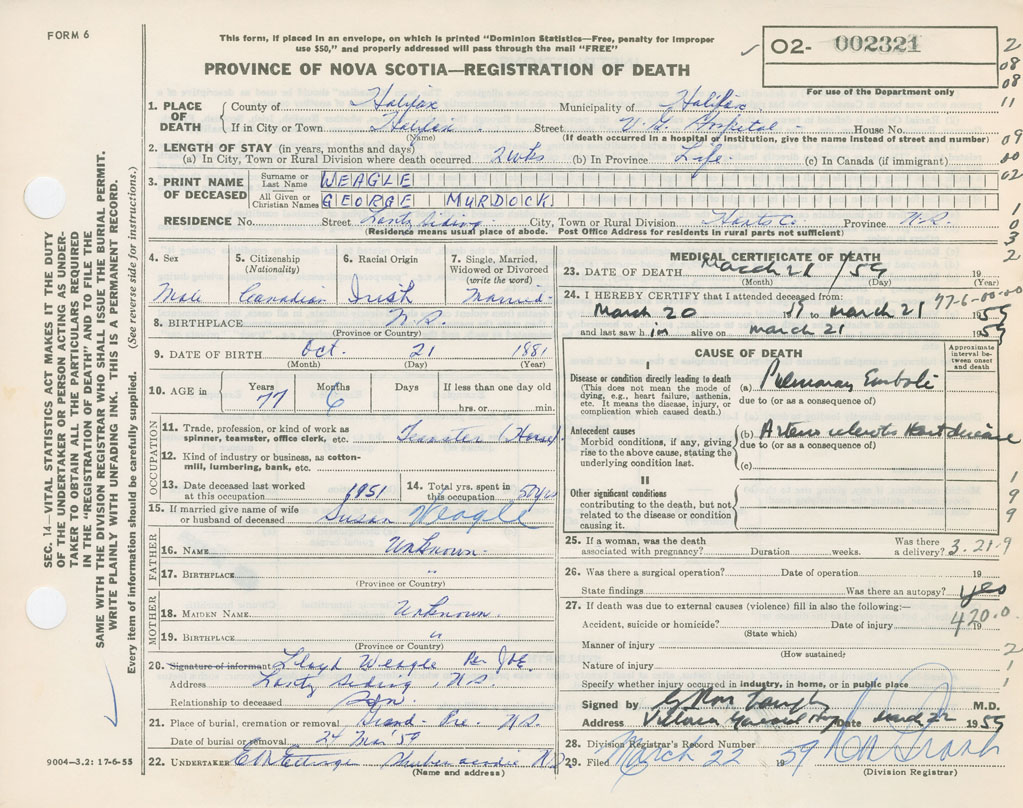 FORM 6
This form, if placed in an envelope, on which is printed "Dominion Statistics—Free, penalty for improper
use $50," and properly addressed will pass through the mail "FREE"
PROVINCE OF NOVA SCOTIA—REGISTRATION OF DEATH
02- 002321
For use of the Department only
2
08
08
11
09
00
02
1
0
3
2
SEC. 14—VITAL STATISTICS ACT MAKES IT THE DUTY
OF THE UNDERTAKER OR PERSON ACTING AS UNDER-
TAKER TO OBTAIN ALL THE PARTICULARS REQUIRED
IN THE "REGISTRATION OF DEATH" AND TO FILE THE
SAME WITH THE DIVISION REGISTRAR WHO SHALL ISSUE THE BURIAL PERMIT.
WRITE PLAINLY WITH UNFADING INK. THIS IS A PERMANENT RECORD.
Every item of information should be carefully supplied. (See reverse side for instructions.)
9004—3.2: 17-6-55
1. PLACE OF DEATH County of Halifax Municipality of Halifax
If in City or Town Halifax Street V.G. Hospital House No.
(Name) (If death occurred in a hospital or institution, give the name instead of street and number)
2. LENGTH OF STAY (in years, months and days)
(a) In City, Town or Rural Division where death occurred 2 wks (b) In Province Life. (c) In Canada (if immigrant)
3. PRINT NAME OF DECEASED Surname or Last Name WEAGLE
All Given or Christian Names GEORGE MURDOCK
RESIDENCE No. Street Lantz Siding City, Town or Rural Division Hants Co. Province N.S.
(Residence means usual place of abode. Post Office Address for residents in rural parts not sufficient)
4. Sex Male
5. Citizenship (Nationality) Canadian
6. Racial Origin Irish
7. Single, Married, Widowed or Divorced (write the word) Married
8. BIRTHPLACE N.S.
(Province or Country)
9. DATE OF BIRTH Oct. 21 1881
(Month) (Day) (Year)
10. AGE in Years 77 Months 6 Days If less than one day old
hrs. or min.
OCCUPATION
11. Trade, profession, or kind of work as spinner, teamster, office clerk, etc. Teamster (Horse)
12. Kind of industry or business, as cotton-mill, lumbering, bank, etc.
13. Date deceased last worked at this occupation 1951 14. Total yrs. spent in this occupation 50 yrs
15. If married give name of wife or husband of deceased Susan Weagle
FATHER
16. NAME Unknown
17. BIRTHPLACE "
(Province or Country)
MOTHER
18. MAIDEN NAME Unknown
19. BIRTHPLACE "
(Province or Country)
20. Signature of informant Lloyd Weagle Per
Address Lantz Siding, N.S.
Relationship to deceased Son
21. Place of burial, cremation or removal Grand-Pre. N.S.
Date of burial or removal 24 Mar '59
22. UNDERTAKER Shubenacadie N.S.
(Name and address)
MEDICAL CERTIFICATE OF DEATH
23. DATE OF DEATH March 21/59 19
(Month) (Day) (Year)
24. I HEREBY CERTIFY that I attended deceased from:
77-6-00-00
March 20 19 to March 21 1959
and last saw him alive on March 21 1959
CAUSE OF DEATH
Approximate interval between onset and death
I
Disease or condition directly leading to death
(This does not mean the mode of dying, e.g., heart failure, asthenia, etc. It means the disease, injury, or complication which caused death.)
(a) Pulmonary Emboli
due to (or as a consequence of)
Antecedent causes
Morbid conditions, if any, giving rise to the above cause, stating the underlying condition last.
(b) Heart disease
due to (or as a consequence of)
(c)
II
Other significant conditions
contributing to the death, but not related to the disease or condition causing it.
1
9
9
25. If a woman, was the death associated with pregnancy? Duration weeks. Was there a delivery? 3.21.9
26. Was there a surgical operation? Date of operation 19
State findings Was there an autopsy? yes
27. If death was due to external causes (violence) fill in also the following:—
420.0
Accident, suicide or homicide? Date of injury 19
(State which)
Manner of injury 2
(How sustained)
Nature of injury 1
Specify whether injury occurred in industry, in home, or in public place 1
Signed by M.D.
Address Victoria General Hosp Date March 22 1959
28. Division Registrar's Record Number
29. Filed March 22 1959
(Division Registrar)